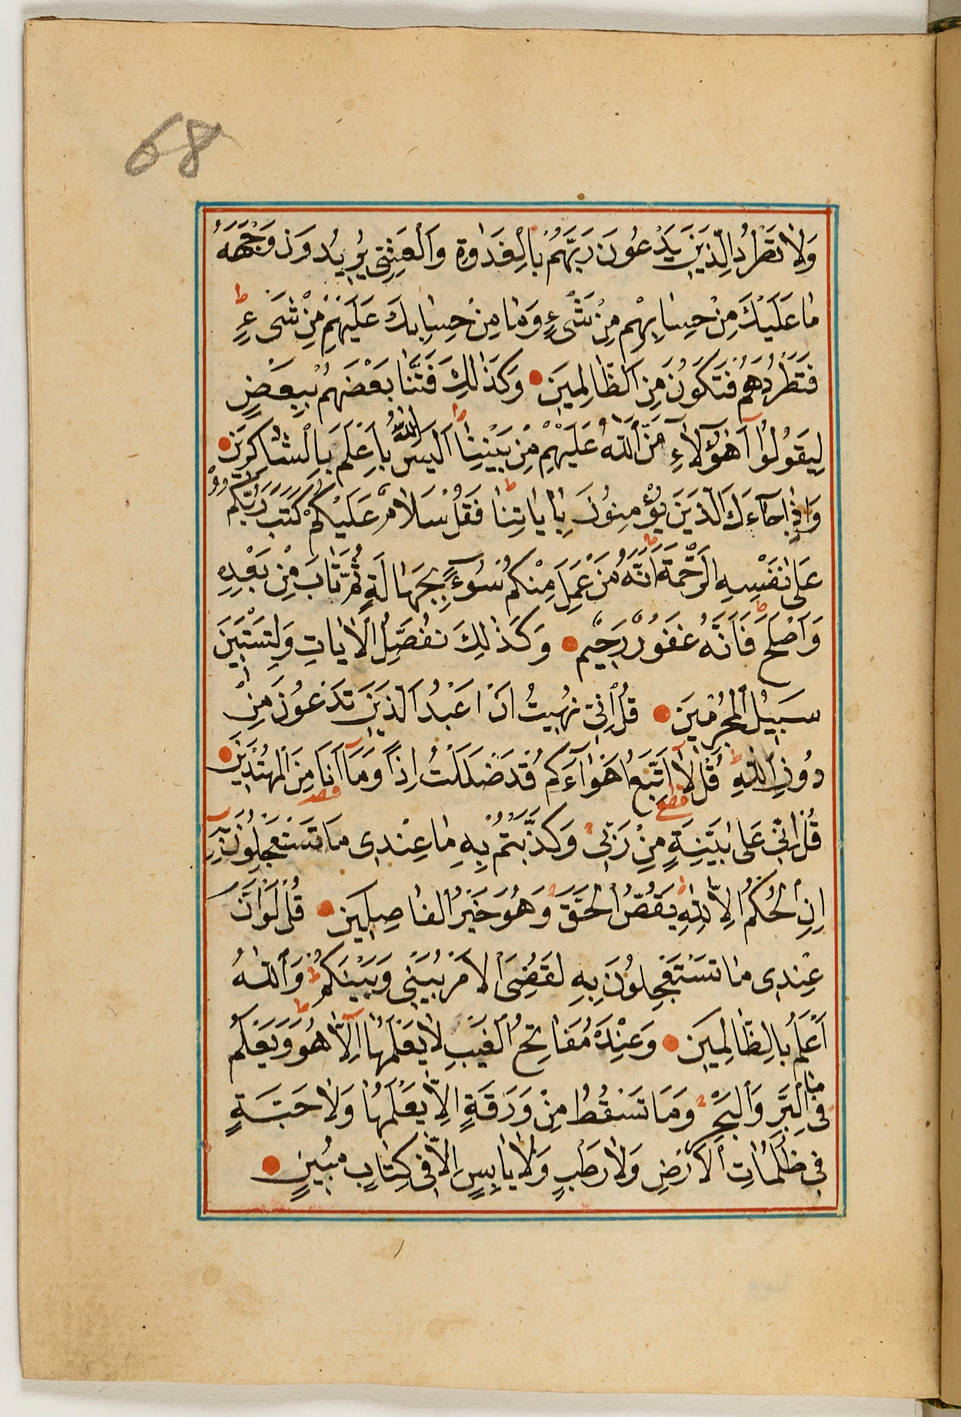 68
وَلَا تَطْرُدِ الَّذِينَ يَدْعُونَ رَبَّهُمْ بِالْغَدٰوةِ وَالْعَشِىِّ يُرِيدُونَ وَجْهَهُ
مَا عَلَيْكَ مِنْ حِسَابِهِمْ مِنْ شَىْءٍ وَمَا مِنْ حِسَابِكَ عَلَيْهِمْ مِنْ شَىْءٍ ط
فَتَطْرُدَهُمْ فَتَكُونَ مِنَ الظَّالِمِينَ وَكَذٰلِكَ فَتَنَّا بَعْضَهُمْ بِبَعْضٍ
لِيَقُولُوا آهٰؤُلَاءِ مَنَّ اللّٰهُ عَلَيْهِمْ مِنْ بَيْنِنَا ط اَلَيْسَ اللّٰهُ بِاَعْلَمَ بِالشَّاكِرِينَ
وَاِذَا جَاءَكَ الَّذِينَ يُؤْمِنُونَ بِاٰيَاتِنَا فَقُلْ سَلَامٌ عَلَيْكُمْ كَتَبَ رَبُّكُمْ
عَلٰى نَفْسِهِ الرَّحْمَةَ اَنَّهُ مَنْ عَمِلَ مِنْكُمْ سُوءًا بِجَهَالَةٍ ثُمَّ تَابَ مِنْ بَعْدِهِ
وَاَصْلَحَ فَاَنَّهُ غَفُورٌ رَحِيمٌ وَكَذٰلِكَ نُفَصِّلُ الْاٰيَاتِ وَلِتَسْتَبِينَ
سَبِيلُ الْمُجْرِمِينَ قُلْ اِنِّى نُهِيتُ اَنْ اَعْبُدَ الَّذِينَ تَدْعُونَ مِنْ
دُونِ اللّٰهِ ط قُلْ لَا اَتَّبِعُ اَهْوَاءَكُمْ قَدْ ضَلَلْتُ اِذًا وَمَا اَنَا مِنَ الْمُهْتَدِينَ
قُلْ اِنِّى عَلٰى بَيِّنَةٍ مِنْ رَبِّى وَكَذَّبْتُمْ بِهِ مَا عِنْدِى مَا تَسْتَعْجِلُونَ بِهِ
اِنِ الْحُكْمُ اِلَّا لِلّٰهِ يَقُصُّ الْحَقَّ وَهُوَ خَيْرُ الْفَاصِلِينَ قُلْ لَوْ اَنَّ
عِنْدِى مَا تَسْتَعْجِلُونَ بِهِ لَقُضِىَ الْاَمْرُ بَيْنِى وَبَيْنَكُمْ وَاللّٰهُ
اَعْلَمُ بِالظَّالِمِينَ وَعِنْدَهُ مَفَاتِحُ الْغَيْبِ لَا يَعْلَمُهَا اِلَّا هُوَ وَيَعْلَمُ
مَا فِى الْبَرِّ وَالْبَحْرِ وَمَا تَسْقُطُ مِنْ وَرَقَةٍ اِلَّا يَعْلَمُهَا وَلَا حَبَّةٍ
فِى ظُلُمَاتِ الْاَرْضِ وَلَا رَطْبٍ وَلَا يَابِسٍ اِلَّا فِى كِتَابٍ مُبِينٍ